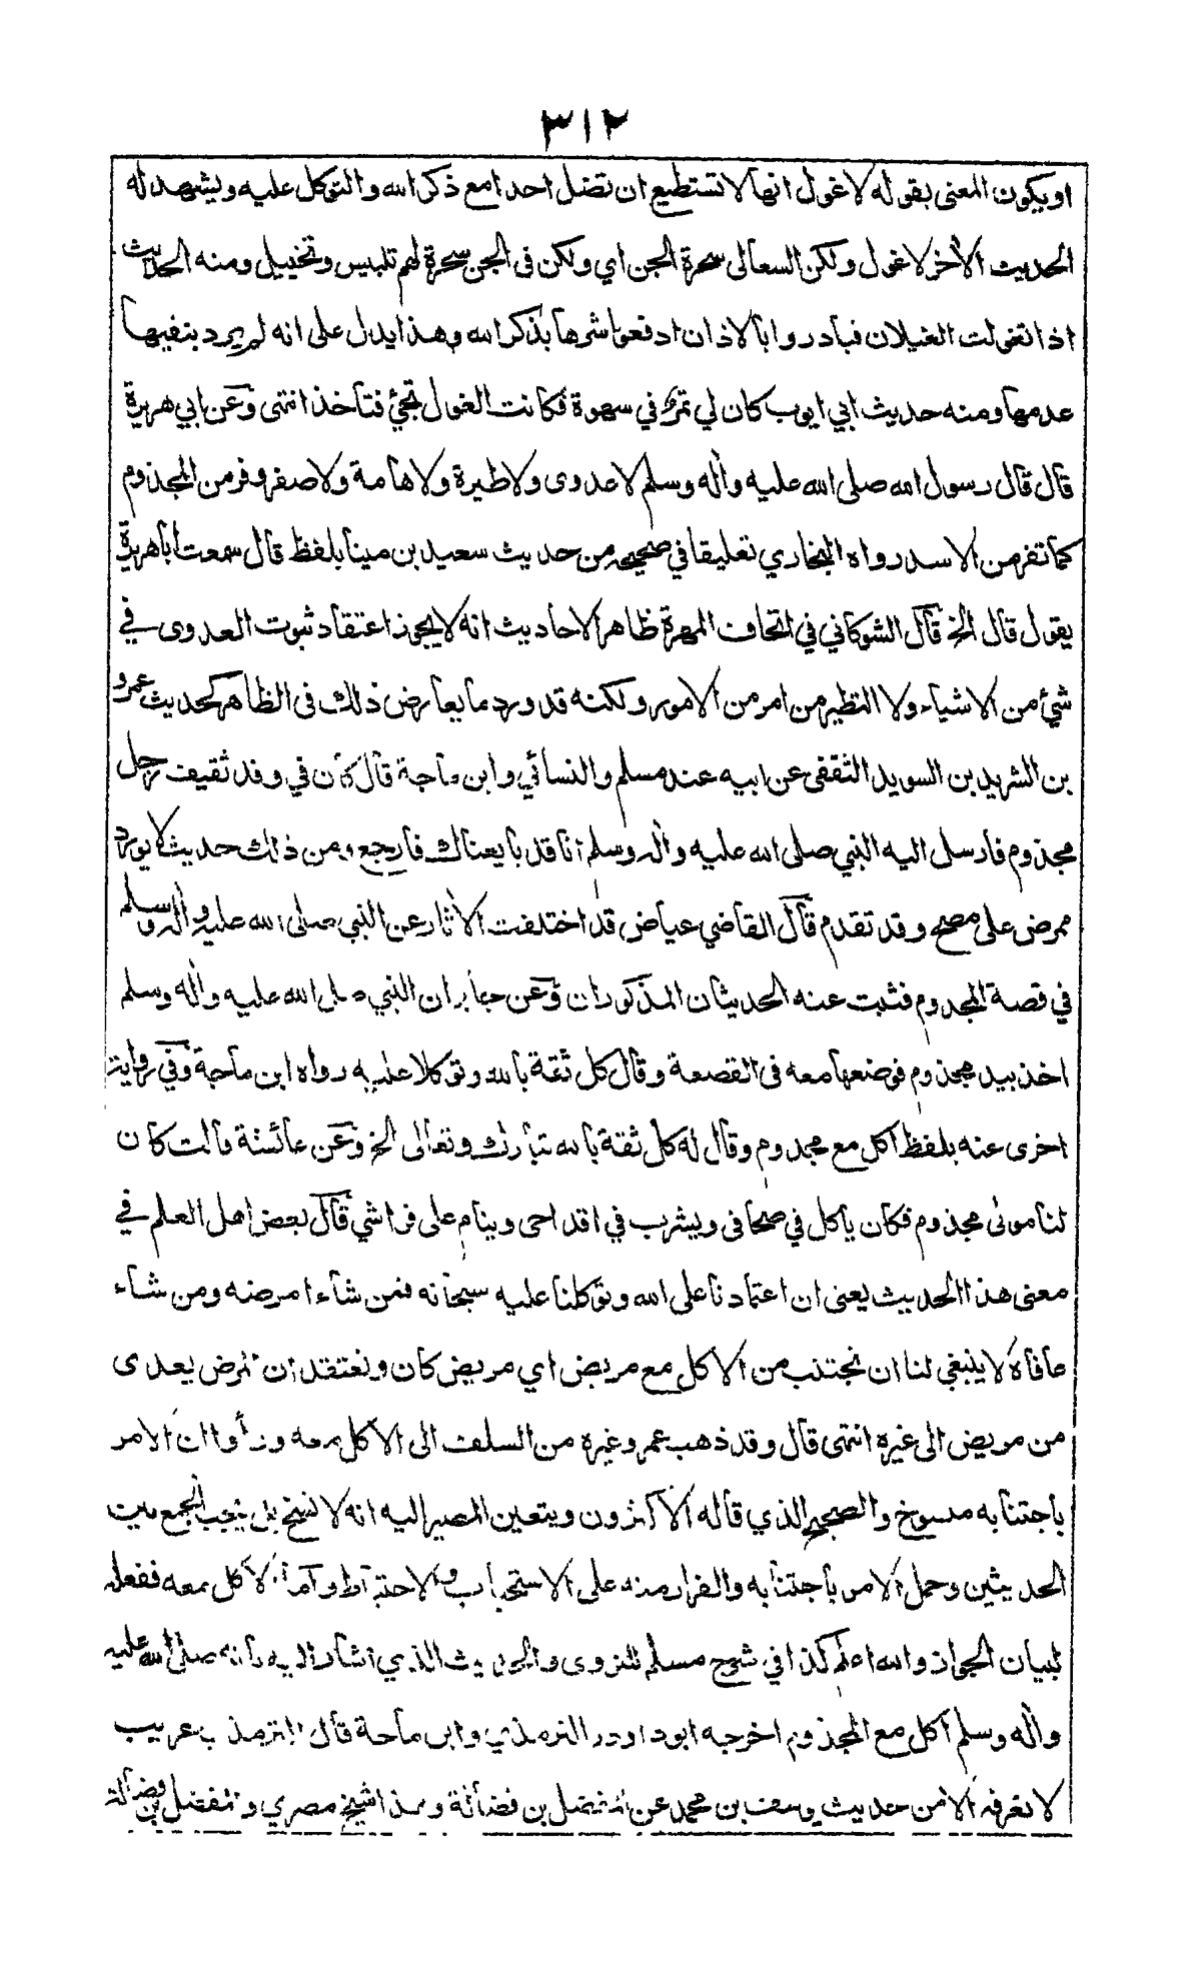 ٣١٢
او يكون المعنى بقوله لا غول انها لا تستطيع ان تضل احدا مع ذكر الله والتوكل عليه ويشهد له
الحديث الأخر لا غول ولكن السعالى سحرة الجن اي ولكن فى الجن سحرة لهم تلبيس وتخييل ومنه الحديث
اذا تغولت الغيلان فبادروا بالاذان ادفعوا شرها بذكر الله وهذا يدل على انه لم يرد بنفيها
عدمها ومنه حديث ابي ايوب كان لي تمر في سهوة فكانت الغول تجئ فتأخذ انتهى وعن ابي هريرة
قال قال رسول الله صلى الله عليه وأله وسلم لا عدوى ولا طيرة ولا هامة ولا صفر وفر من المجذوم
كما تفر من الاسد رواه البخاري تعليقا في صحيحه من حديث سعيد بن مينا بلفظ قال سمعت أبا هريرة
يقول قال الخ قال الشوكاني في اتحاف المهرة ظاهر الاحاديث انه لا يجوز اعتقاد ثبوت العدوى في
شئ من الاشياء ولا التطير من امر من الامور ولكنه قد ورد ما يعارض ذلك فى الظاهر كحديث عمرو
بن الشريد بن السويد الثقفى عن ابيه عند مسلم والنسائي وابن ماجة قال كان في وفد ثقيف رجل
مجذوم فارسل اليه النبي صلى الله عليه وأله وسلم انا قد بايعناك فارجع ومن ذلك حديث لا يورد
ممرض على مصح وقد تقدم قال القاضي عياض قد اختلفت الأثار عن النبي صلى الله عليه وأله وسلم
في قصة المجذوم فثبت عنه الحديثان المذكوران وعن جابر ان النبي صلى الله عليه وأله وسلم
اخذ بيد مجذوم فوضعها معه فى القصعة وقال كل ثقة بالله وتوكلا عليه رواه ابن ماجة وفي رواية
اخرى عنه بلفظ اكل مع مجذوم وقال له كل ثقة بالله تبارك وتعالى الخ وعن عائشة قالت كان
لنا مولى مجذوم فكان ياكل في صحافى ويشرب في اقداحى وينام على فراشي قال بعض اهل العلم في
معنى هذا الحديث يعنى ان اعتمادنا على الله وتوكلنا عليه سبحانه فمن شاء امرضه ومن شاء
عافاه لا ينبغي لنا ان نجتنب من الاكل مع مريض اي مريض كان ونعتقد ان المرض يعدى
من مريض الى غيره انتهى قال وقد ذهب عمر وغيره من السلف الى الأكل معه ورأوا ان الامر
باجتنابه منسوخ والصحيح الذي قاله الأكثرون ويتعين المصير اليه انه لا نسخ بل يجب الجمع بين
الحديثين وحمل الامر باجتنابه والفرار منه على الاستحباب والاحتياط وأما الأكل معه ففعله
لبيان الجواز والله اعلم كذا في شرح مسلم للنووى والحديث الذي اشار اليه بانه صلى الله عليه
وأله وسلم أكل مع المجذوم اخرجه ابو داود والترمذي وابن ماجة قال الترمذي غريب
لا نعرفه الا من حديث يوسف بن محمد عن المفضل بن فضالة وهذا شيخ مصري والمفضل بن فضالة